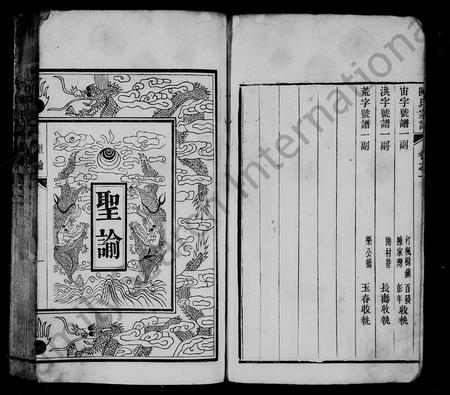 宙字號譜一副 陳家灣 彭年收執
洪字號譜一副 村巷 長壽收執
荒字號譜一副 樂公橋 玉春收執
聖諭
International